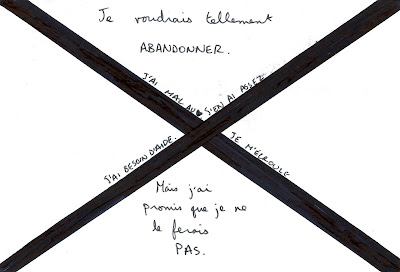 Je voudrais tellement
ABANDONNER.
J'AI MAL AU ♥
J'EN AI ASSEZ
J'AI BESOIN D'AIDE.
JE M'ÉCROULE
Mais j'ai
promis que je ne
le ferais
PAS.